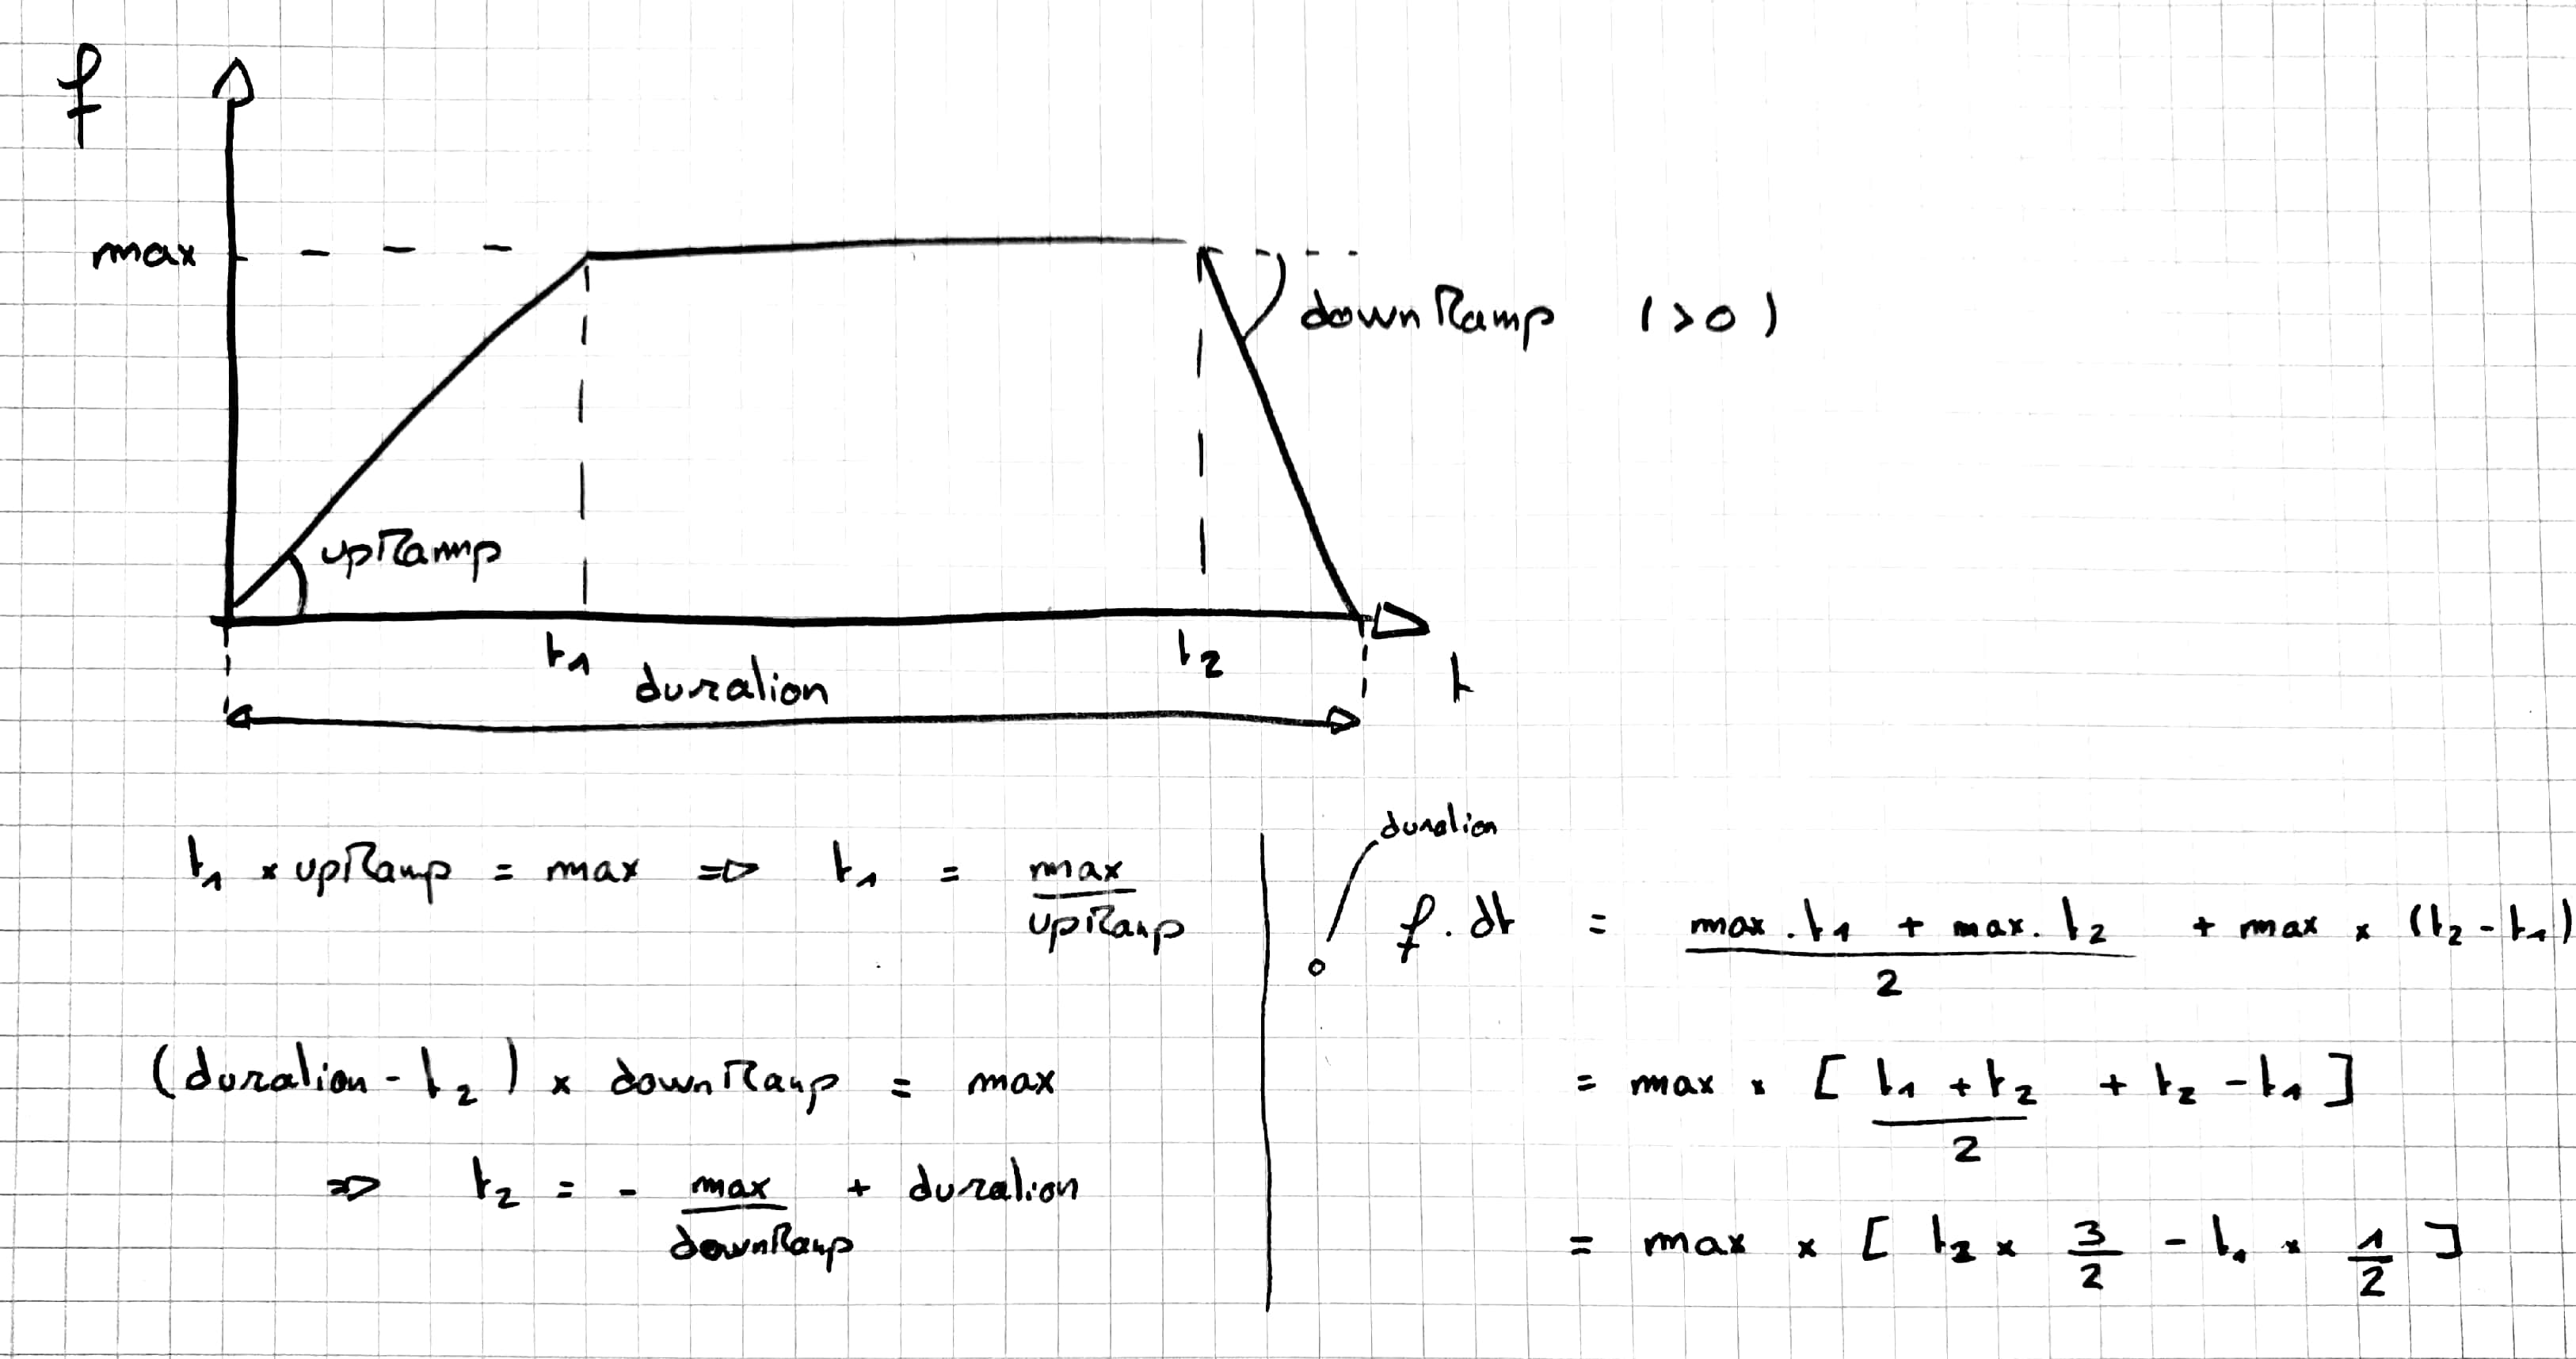 f
max
downRamp (>0)
upRamp
t₁
t₂
duration
t
t₁ × upRamp = max => t₁ = max / upRamp
(duration - t₂) × downRamp = max
=> t₂ = - max / downRamp + duration
∫₀^duration f . dt = (max . t₁ + max . t₂) / 2 + max × (t₂ - t₁)
= max × [ (t₁ + t₂) / 2 + t₂ - t₁ ]
= max × [ t₂ × 3/2 - t₁ × 1/2 ]